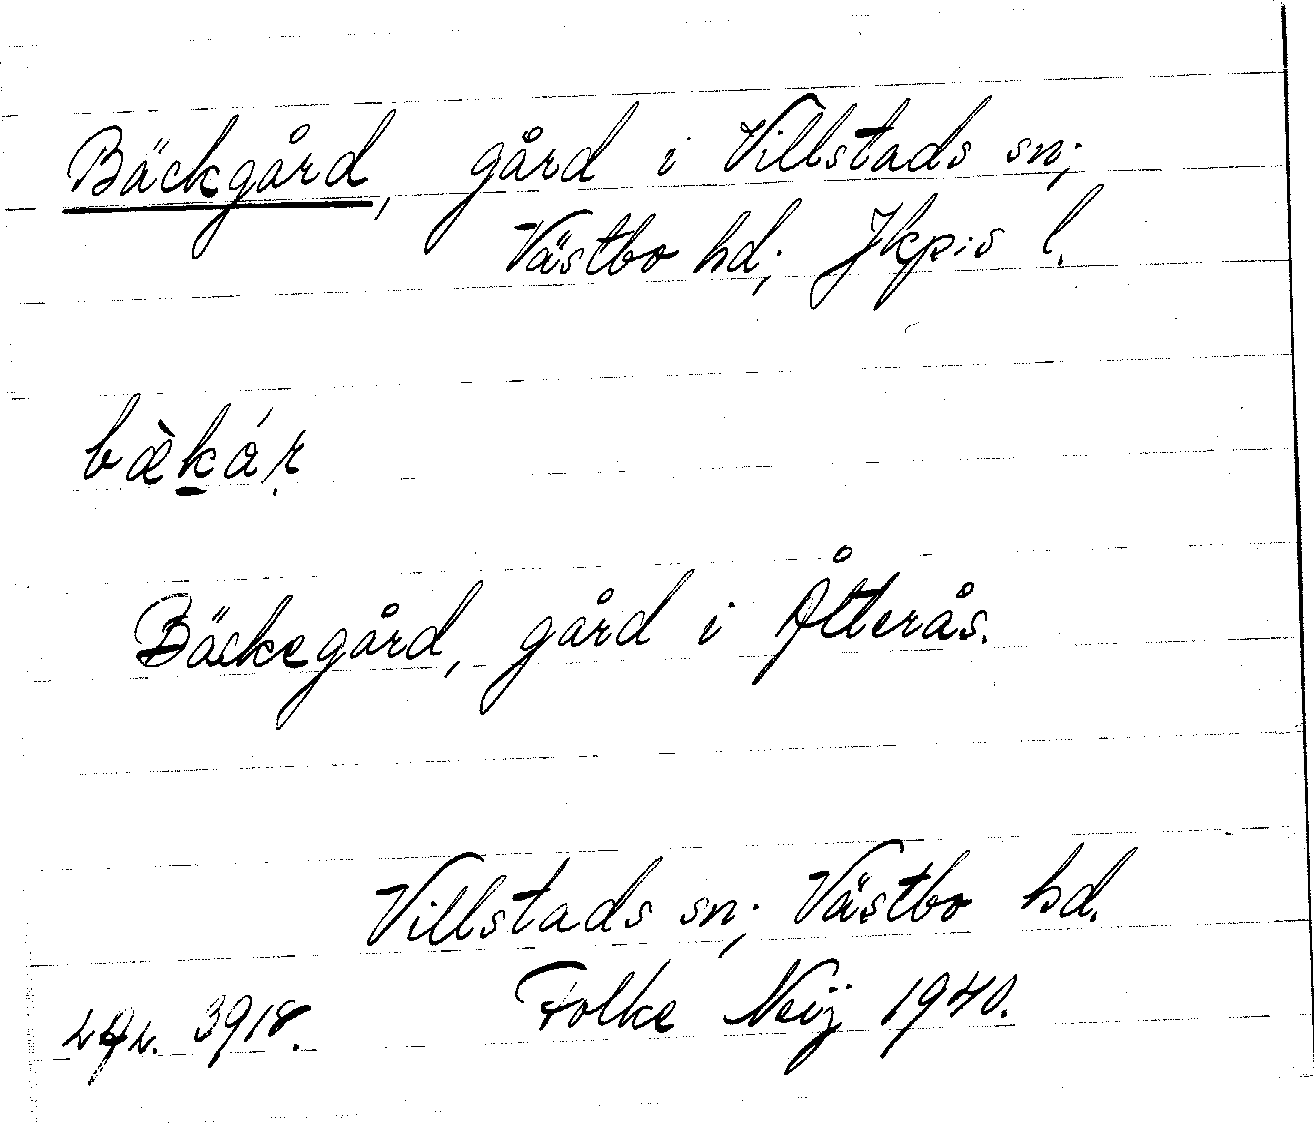 Bäckgård, gård i Villstads sn;
Västbo hd; Jkp:s l.
bæ̀kár
Bäckegård, gård i Åtterås.
Villstads sn; Västbo hd.
3918. Folke Neij 1940.